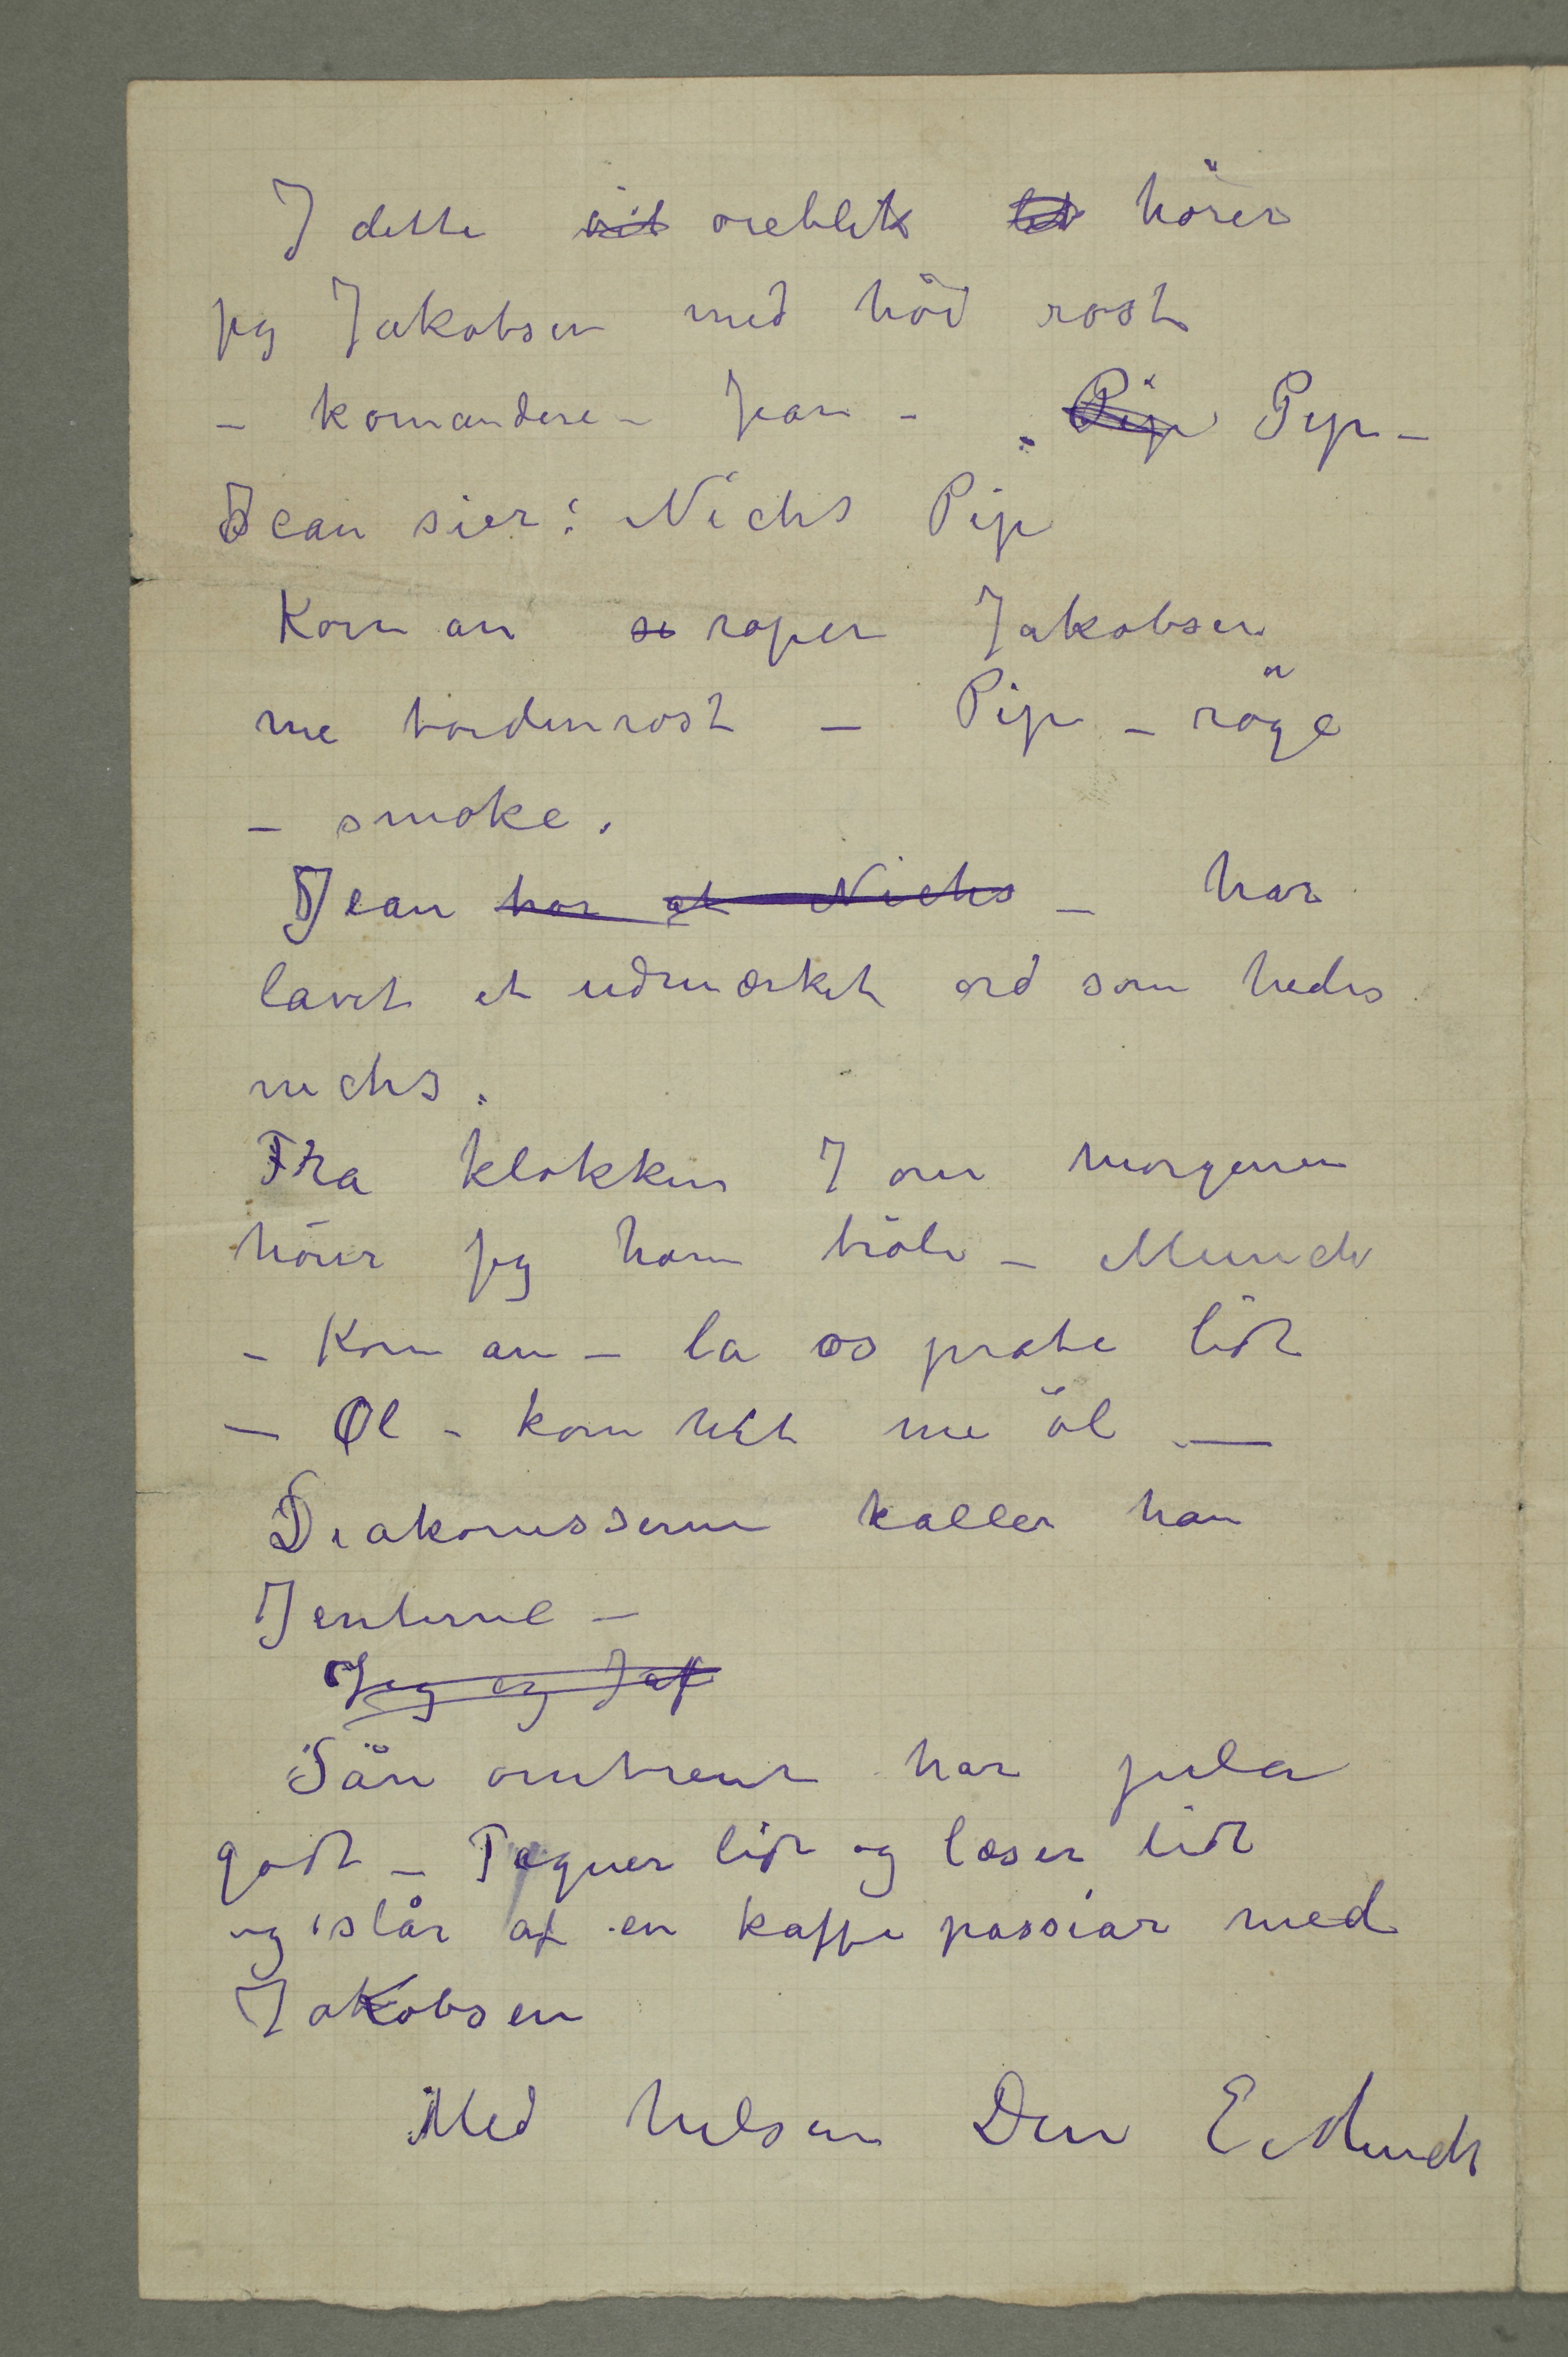 I dette oieblik hører
jeg Jakobsen med höi rost
– komandere – Jean – „ Pip Pip –
Jean sier: Nichs Pip
Kom an roper Jakobsen
me tordenrost – Pip – röge
– smoke.
Jean har at Nichs – har
lavet et udmærket ord som hedes
nichs.
Fra klokken 7 om morgenen
hörer jeg ham bröle – Munch
– Kom an – la os prate lidt
– Øl – kom hit me öl —
Diakonisserne kaller han
Jenterne –
Jeg og Jak
Sån omtrent har jula
godt – Tegner lidt og læser lidt
og slår af en kaffepassiar med
Jakobsen
Med hilsen Din E Munch